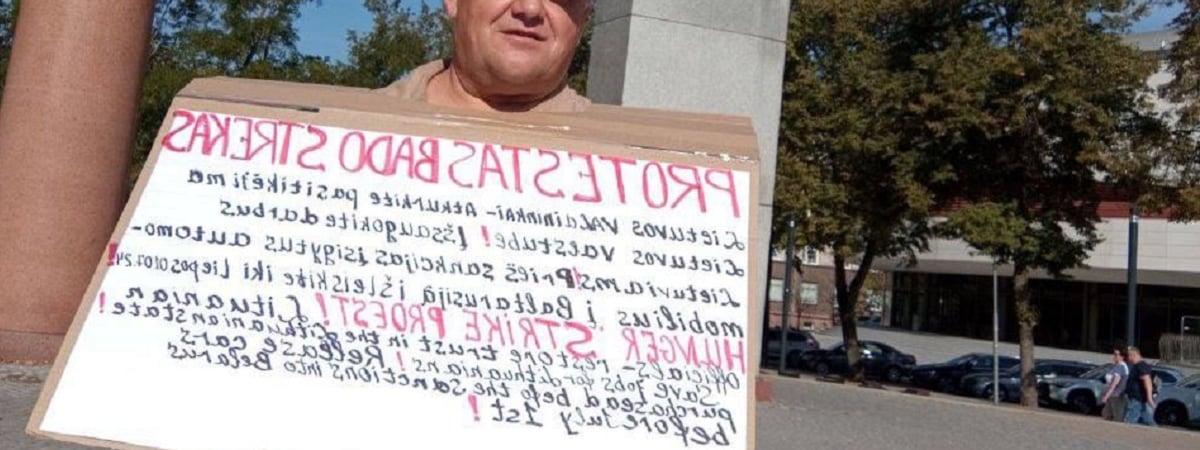 PROTESTAS BADO STREKAS
Lietuvos Valdininkai - Atkurkite pasitikėjima
Lietuvos Valstube! Išsaugokite darbus
Lietuviams! Prieš sankcijas įsigytus automo-
mobilius į Baltarusiją išleiskite iki Liepos 01.07.24!
HUNGER STRIKE PROEST!
Officials - restore trust in the Lituanian
Save jobs for Lithuanians! Lithuanian state!
purchasead befo the sanctions into Belarus
Release cars
before July 1st!